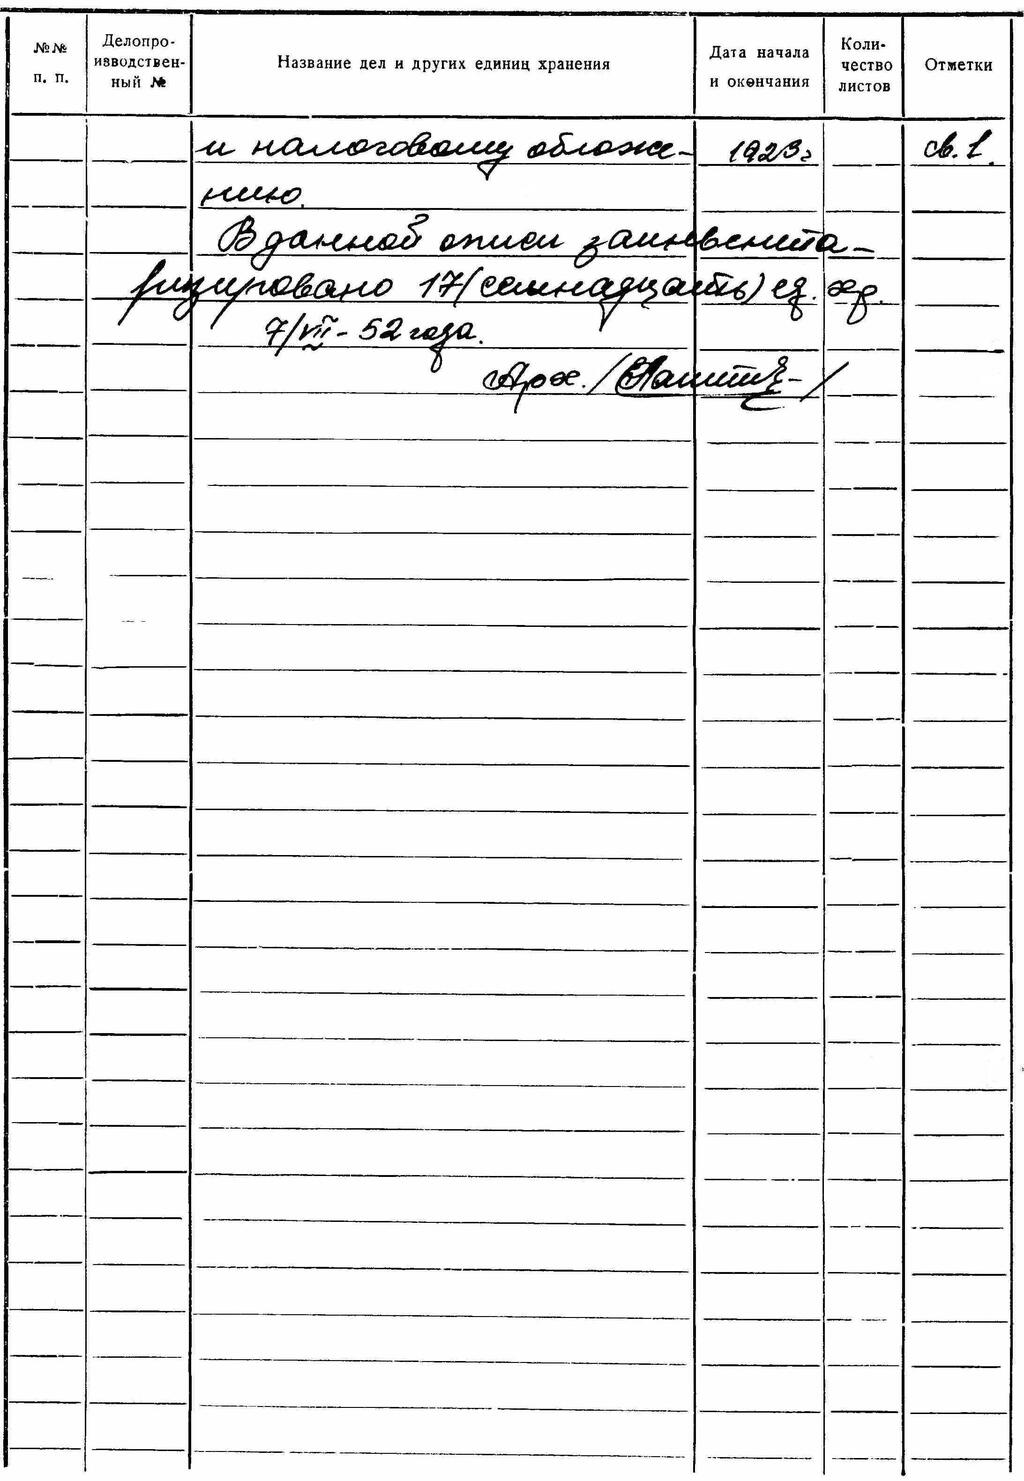 №№ п. п. Делопроизводственный № Название дел и других единиц хранения Дата начала и окончания Количество листов Отметки
и налоговому обложе- 1923г св. 1.
нию.
В данной описи заинвента-
ризировано 17/семнадцать) ед. хр.
7/VII - 52 года.
Арх. / /